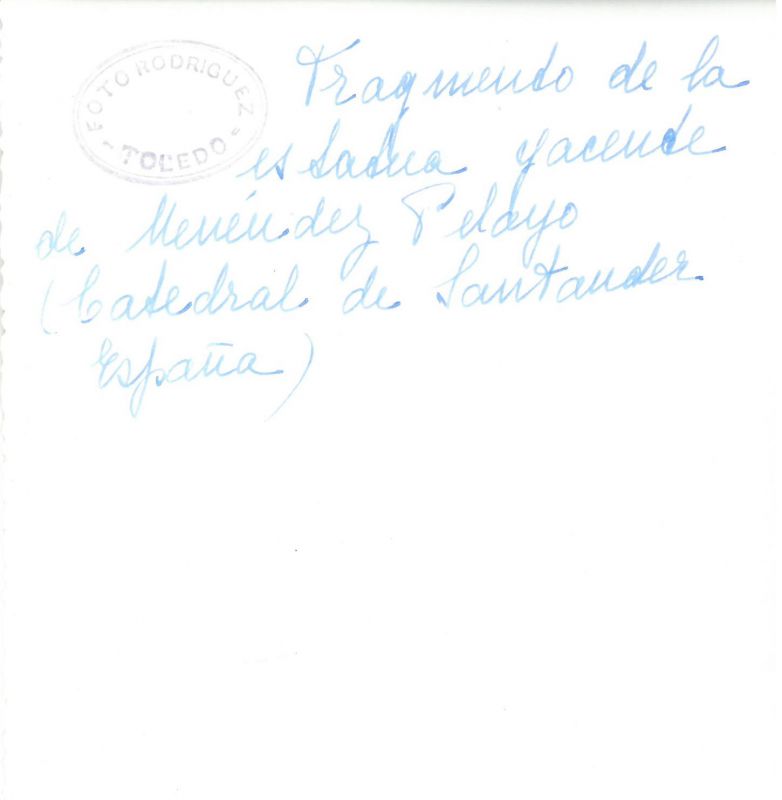 FOTO RODRIGUEZ
- TOLEDO -
Fragmento de la
estatua yacente
de Menéndez Pelayo
(Catedral de Santander
España)